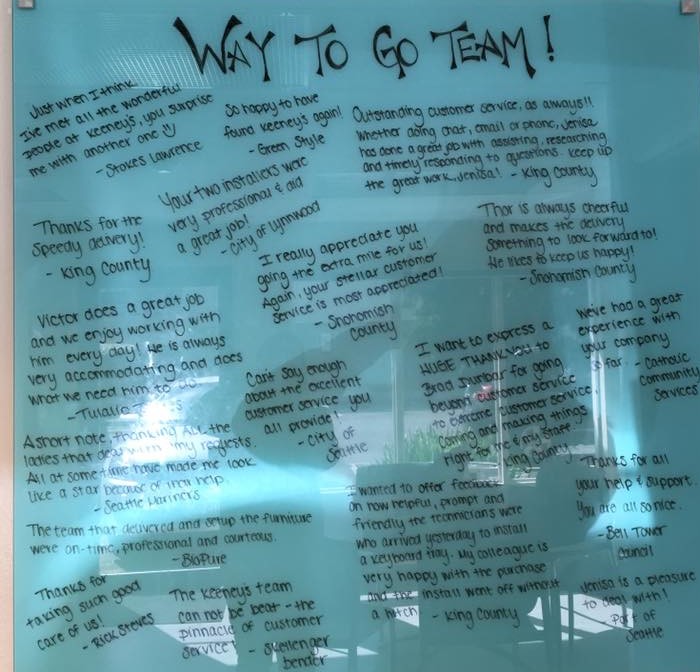 WAY TO GO TEAM!
Just when I think
I've met all the wonderful
people at Keeney's, you surprise
me with another one
- Stokes Lawrence
So happy to have
found Keeney's again!
- Green Style
Outstanding customer service, as always!!
Whether doing chat, email or phone, Jenisa
has done a great job with assisting, researching
and timely responding to questions. Keep up
the great work, Jenisa! - King County
Your two installers were
very professional & did
a great job!
- City of Lynnwood
Thanks for the
speedy delivery!
- King County
Thor is always cheerful
and makes the delivery
something to look forward to!
He likes to keep us happy!
- Snohomish County
I really appreciate you
going the extra mile for us!
Again, your stellar customer
service is most appreciated!
- Snohomish
County
Victor does a great job
and we enjoy working with
him every day! He is always
very accommodating and does
what we need him to do.
- Tulalip
Can't say enough
about the excellent
customer service you
all provide!
- City of
Seattle
I want to express a
HUGE THANK YOU to
Brad Dunbar for going
beyond customer service
to extreme customer service,
coming and making things
right for me & my staff.
King County
We've had a great
experience with
your company
so far. - Catholic
Community
Services
A short note, thanking ALL the
ladies that deal with my requests.
All at some time have made me look
like a star because of their help.
- Seattle Mariners
Thanks for all
your help & support.
You are all so nice.
- Bell Tower
Council
I wanted to offer feedback
on how helpful, prompt and
friendly the technicians were
who arrived yesterday to install
a keyboard tray. My colleague is
very happy with the purchase
and the install went off without
a hitch - King County
The team that delivered and setup the furniture
were on-time, professional and courteous.
- BioPure
Thanks for
taking such good
care of us!
- Rick Steves
The Keeney's team
can not be beat - the
pinnacle of customer
service! - Skellenger
bender
Jenisa is a pleasure
to deal with!
Port of
Seattle